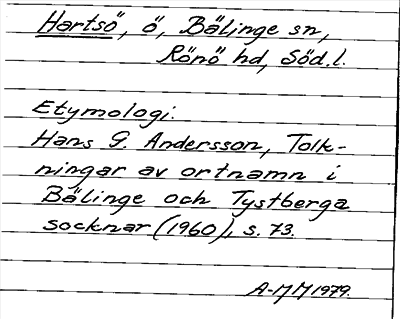 Hartsö, ö, Bälinge sn,
Rönö hd, Söd.l.
Etymologi.
Hans G. Andersson, Tolk-
ningar av ortnamn i
Bälinge och Tystberga
socknar (1960), s. 73.
A-MM 1979.